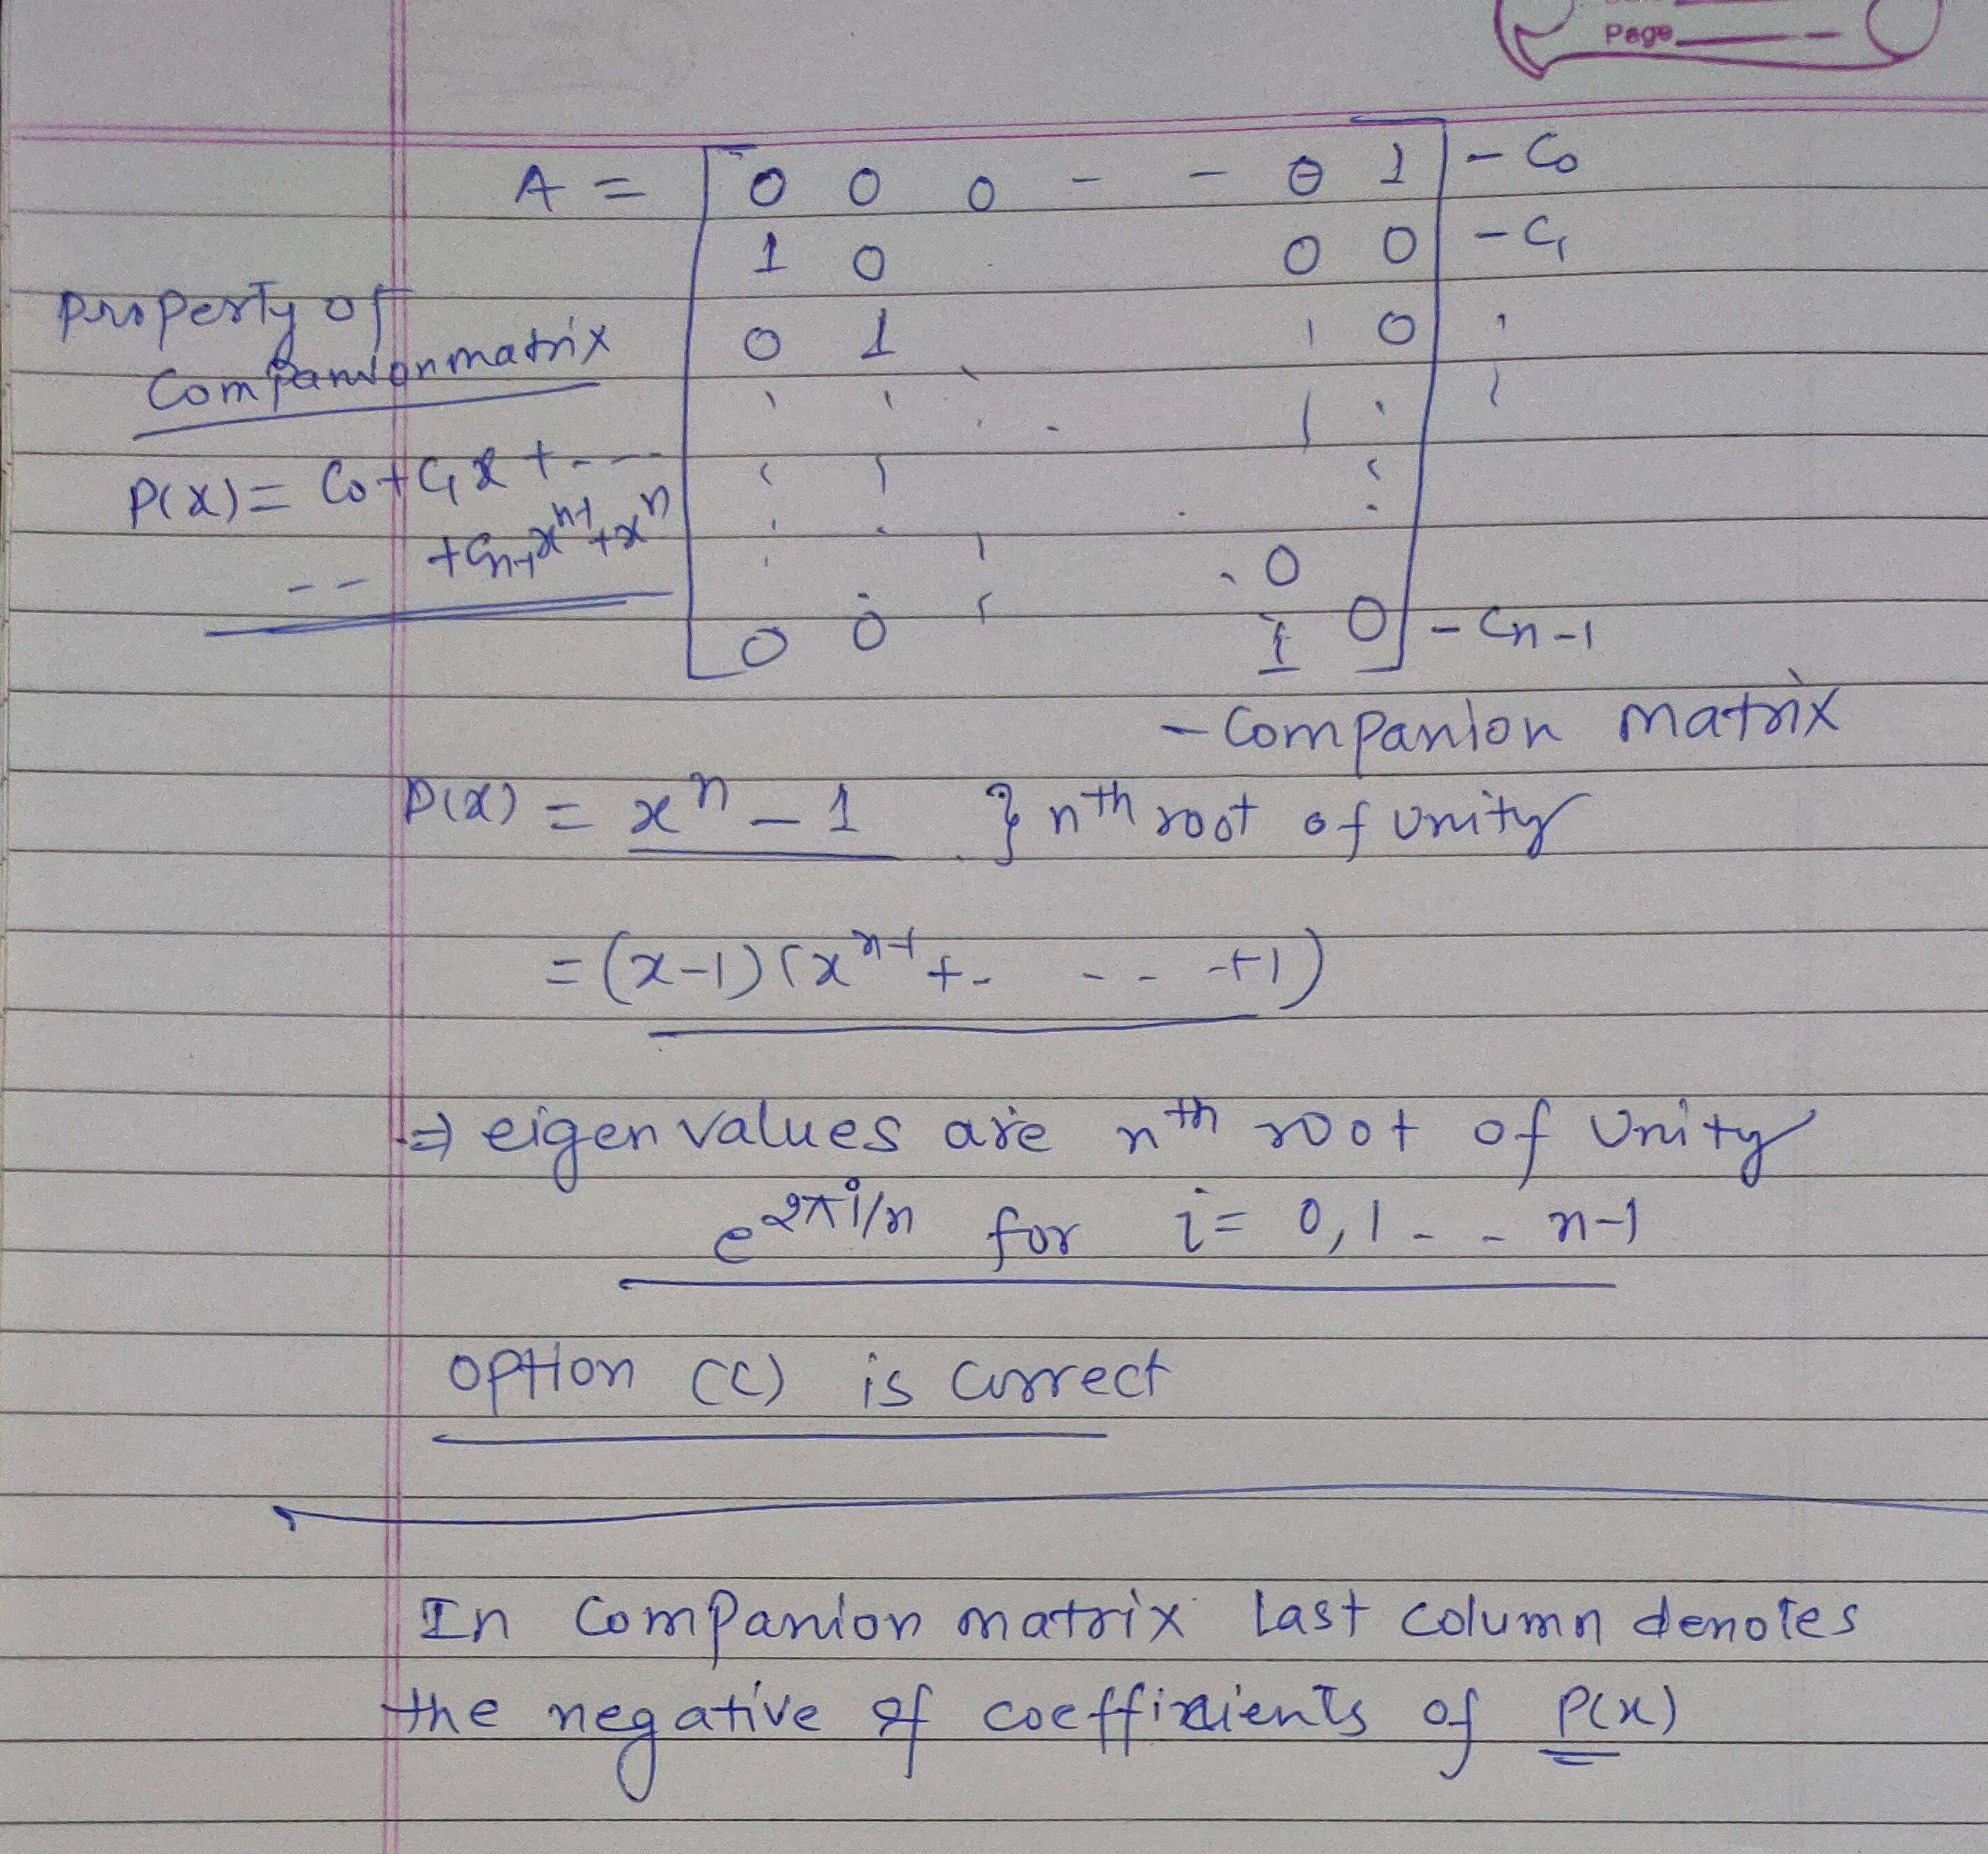 Page
A = [ 0 0 0 - - 0 1 ] - C₀
1 0 . 0 0 - C₁
property of
0 1 0
Companion matrix
P(x) = C₀ + C₁x + - - -
- - + Cₙ₋₁xⁿ⁻¹ + xⁿ
0
0 0 1 0 - Cn-1
- Companion matrix
P(x) = xⁿ - 1 } nth root of unity
= (x-1) (xⁿ⁻¹ + - - - +1)
⇒ eigen values are nth root of unity
e^2πi/n for i = 0, 1 - - n-1
option (c) is correct
In Companion matrix last column denotes
the negative of coefficients of P(x)